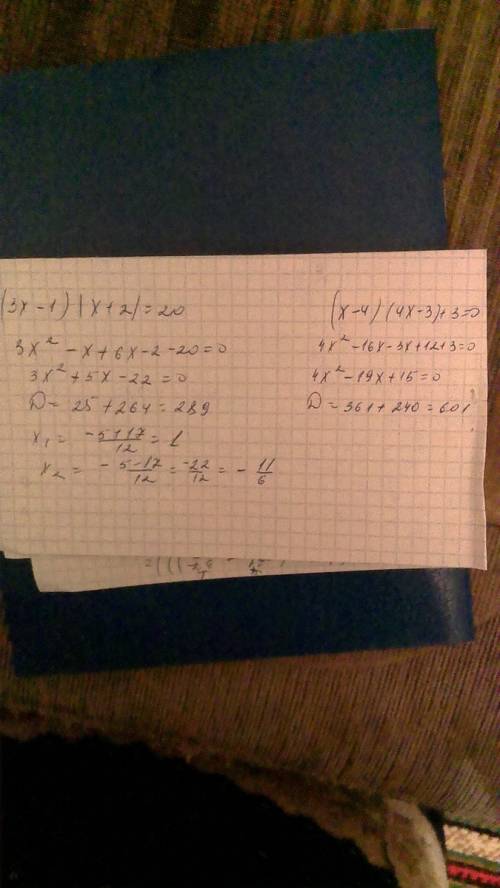 (3x-1)|x+2|=20
3x²-x+6x-2-20=0
3x²+5x-22=0
D=25+264=289
x₁= -5+17/12 = 1
x₂= -5-17/12 = -22/12 = -11/6
(x-4)(4x-3)+3=0
4x²-16x-3x+12+3=0
4x²-19x+15=0
D=361+240=601